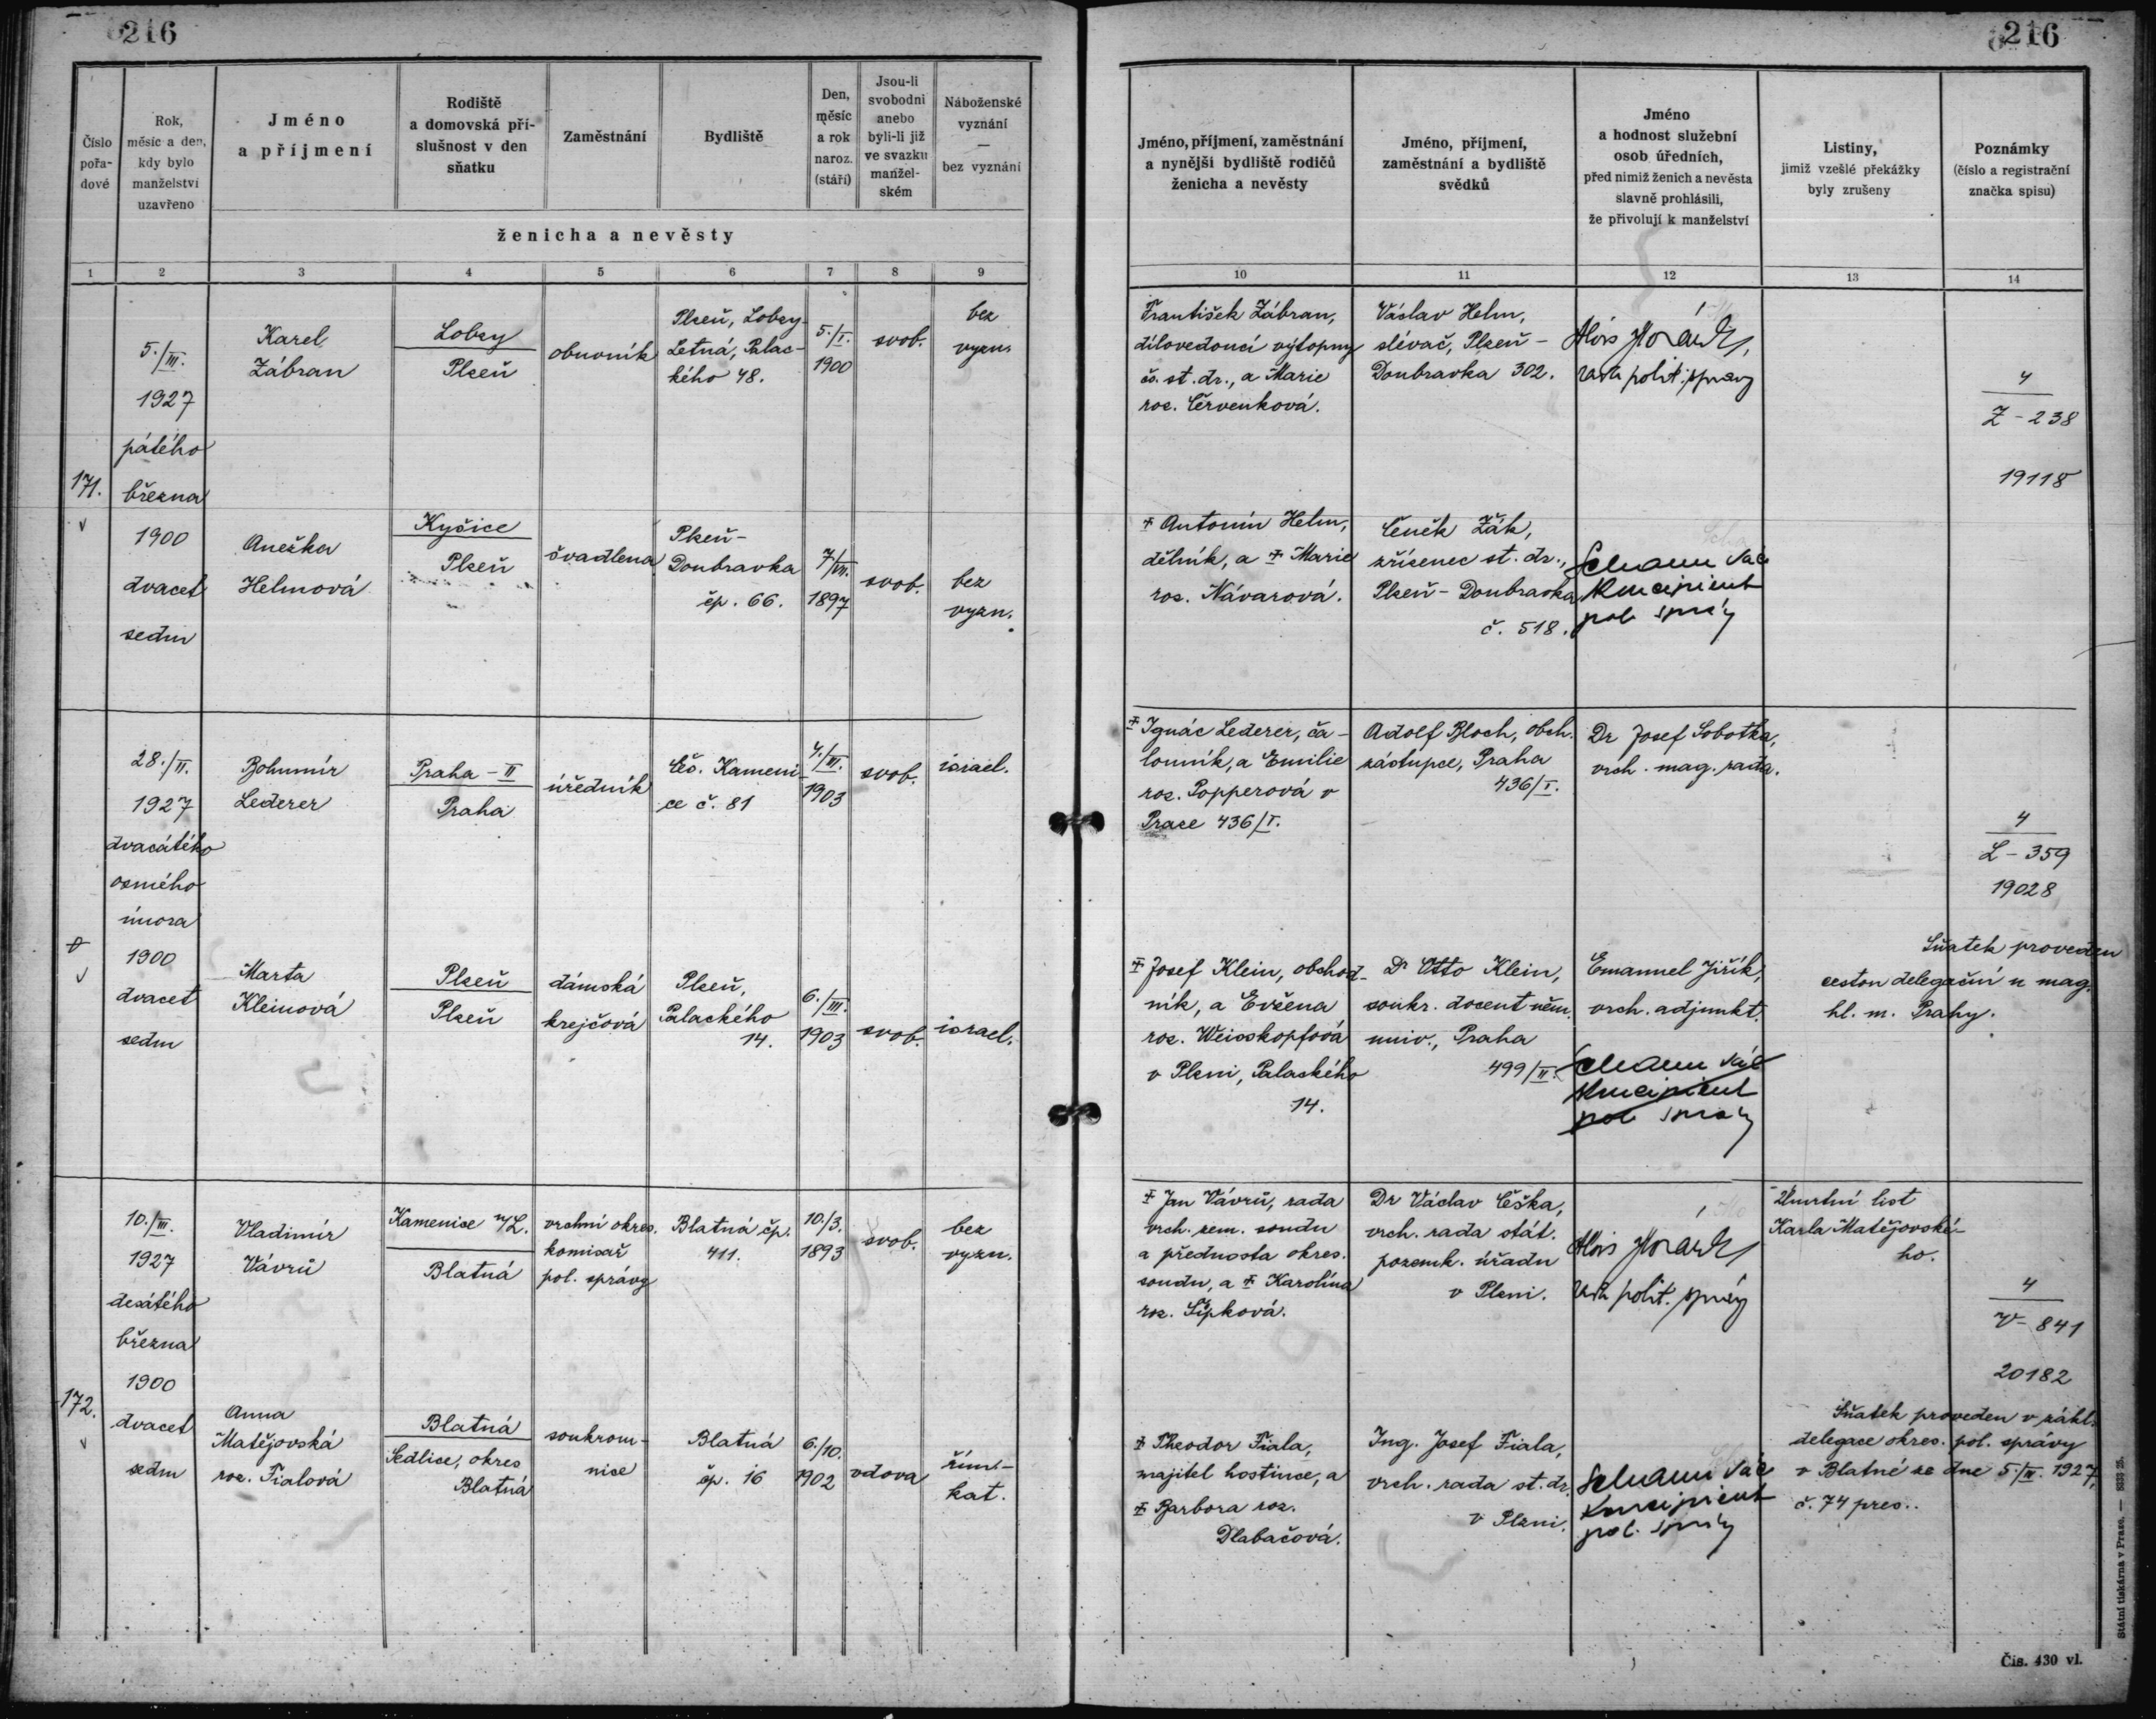 216
Číslo
pořa-
dové
Rok,
měsíc a den,
kdy bylo
manželství
uzavřeno
Jméno
a příjmení
Rodiště
a domovská pří-
slušnost v den
sňatku
Zaměstnání
Bydliště
Den,
měsíc
a rok
naroz.
(stáří)
Jsou-li
svobodni
anebo
byli-li již
ve svazku
manžel-
ském
Náboženské
vyznání
—
bez vyznání
ženicha a nevěsty
1 2 3 4 5 6 7 8 9
171.
5./III.
1927
pátého
března
1900
dvacet
sedm
Karel
Zábran
Lobzy
Plzeň
obuvník
Plzeň, Lobzy
Letná, Palac-
kého 48.
5./I.
1900
svob.
bez
vyzn.
Anežka
Helmová
Kyšice
Plzeň
švadlena
Plzeň-
Doubravka
čp. 66.
7/VII.
1897
svob.
bez
vyzn.
28./II.
1927
dvacátého
osmého
února
1900
dvacet
sedm
Bohumír
Lederer
Praha-II
Praha
úředník
Čes. Kameni-
ce č. 81
4./III.
1903
svob.
israel.
Marta
Kleinová
Plzeň
Plzeň
dámská
krejčová
Plzeň,
Palackého
14.
6./III.
1903
svob.
israel.
172.
10./III.
1927
desátého
března
1900
dvacet
sedm
Vladimír
Vávrů
Kamenice n/L.
Blatná
vrchní okres.
komisař
pol. správy
Blatná čp.
411.
10./3.
1893
svob.
bez
vyzn.
Anna
Matějovská
roz. Fialová
Blatná
Sedlice, okres
Blatná
soukrom-
nice
Blatná
čp. 16
6./10.
1902
vdova
řím.-
kat.
216
Jméno, příjmení, zaměstnání
a nynější bydliště rodičů
ženicha a nevěsty
Jméno, příjmení,
zaměstnání a bydliště
svědků
Jméno
a hodnost služební
osob úředních,
před nimiž ženich a nevěsta
slavně prohlásili,
že přivolují k manželství
Listiny,
jimiž vzešlé překážky
byly zrušeny
Poznámky
(číslo a registrační
značka spisu)
10 11 12 13 14
František Zábran,
dílovedoucí výtopny
čs. st. dr., a Marie
roz. Červenková.
Václav Helm,
slévač, Plzeň-
Doubravka 302.
Alois Horák,
rada polit. správy
4
Z-238
19118
+ Antonín Helm,
dělník, a + Marie
roz. Návarová.
Čeněk Žák,
zřízenec st. dr.,
Plzeň-Doubravka
č. 518.
koncipient
pol. správy
+ Ignác Lederer, ča-
louník, a Emilie
roz. Popperová v
Praze 436/I.
Adolf Bloch, obch.
zástupce, Praha
436/I.
Dr Josef Sobotka,
vrch. mag. rada.
4
L-359
19028
+ Josef Klein, obchod-
ník, a Evžena
roz. Weisskopfová
v Plzni, Palackého
14.
Dr Otto Klein,
soukr. docent něm.
univ., Praha
499/II.
Emanuel Jiřík,
vrch. adjunkt.
koncipient
pol správy
Sňatek proveden
cestou delegační u mag.
hl. m. Prahy.
+ Jan Vávrů, rada
vrch. zem. soudu
a přednosta okres.
soudu, a + Karolína
roz. Šípková.
Dr Václav Češka,
vrch. rada stát.
pozemk. úřadu
v Plzni.
Alois Horák,
rada polit. správy
Úmrtní list
Karla Matějovské-
ho.
4
V-841
20182
+ Theodor Fiala,
majitel hostince, a
+ Barbora roz.
Dlabačová.
Ing. Josef Fiala,
vrch. rada st. dr.
v Plzni.
koncipient
pol. správy
Sňatek proveden v zákl.
delegace okres. pol. správy
v Blatné ze dne 5./III. 1927,
č. 74 pres..
Státní tiskárna v Praze. — 8333 25.
Čís. 430 vl.